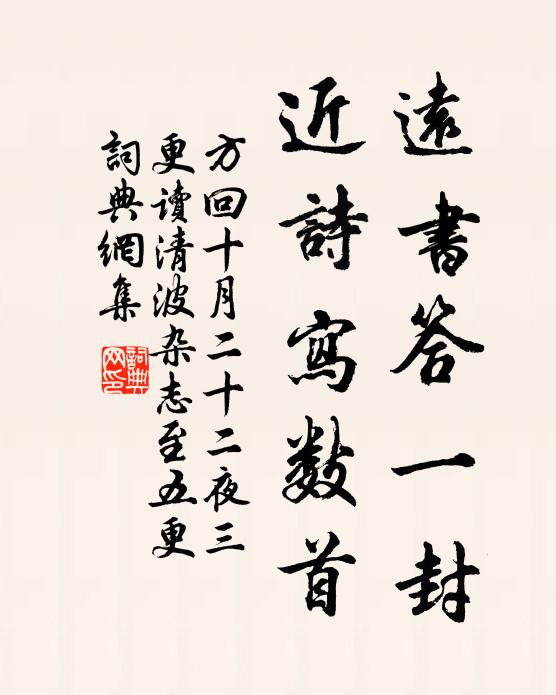 遠書答一封
近詩寫數首
方回十月二十二夜三
更讀清波杂志至五更
詞典網集
詞典網印